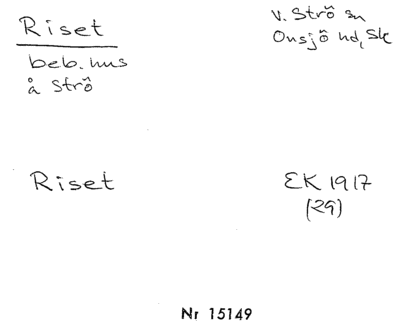 Riset
V. Strö sn
Onsjö hd, Sk
beb. hus
å Strö
Riset
EK 1917
(29)
Nr 15149